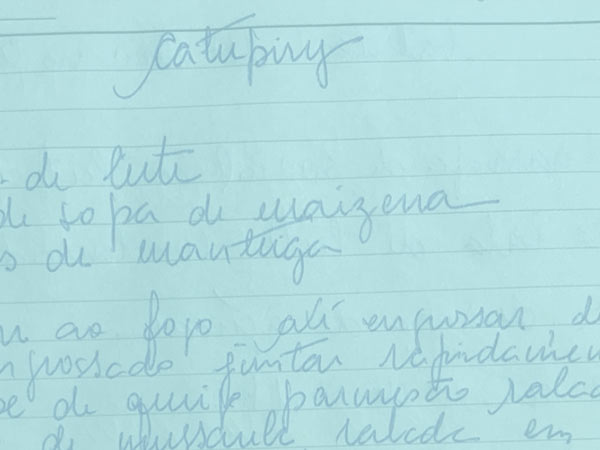 Catupiry
de leite
de sopa de maizena
s de manteiga
ao fogo até engrossar d
ngrossado juntar rapidamen
de queijo parmesão ralad
de mussarela ralada em